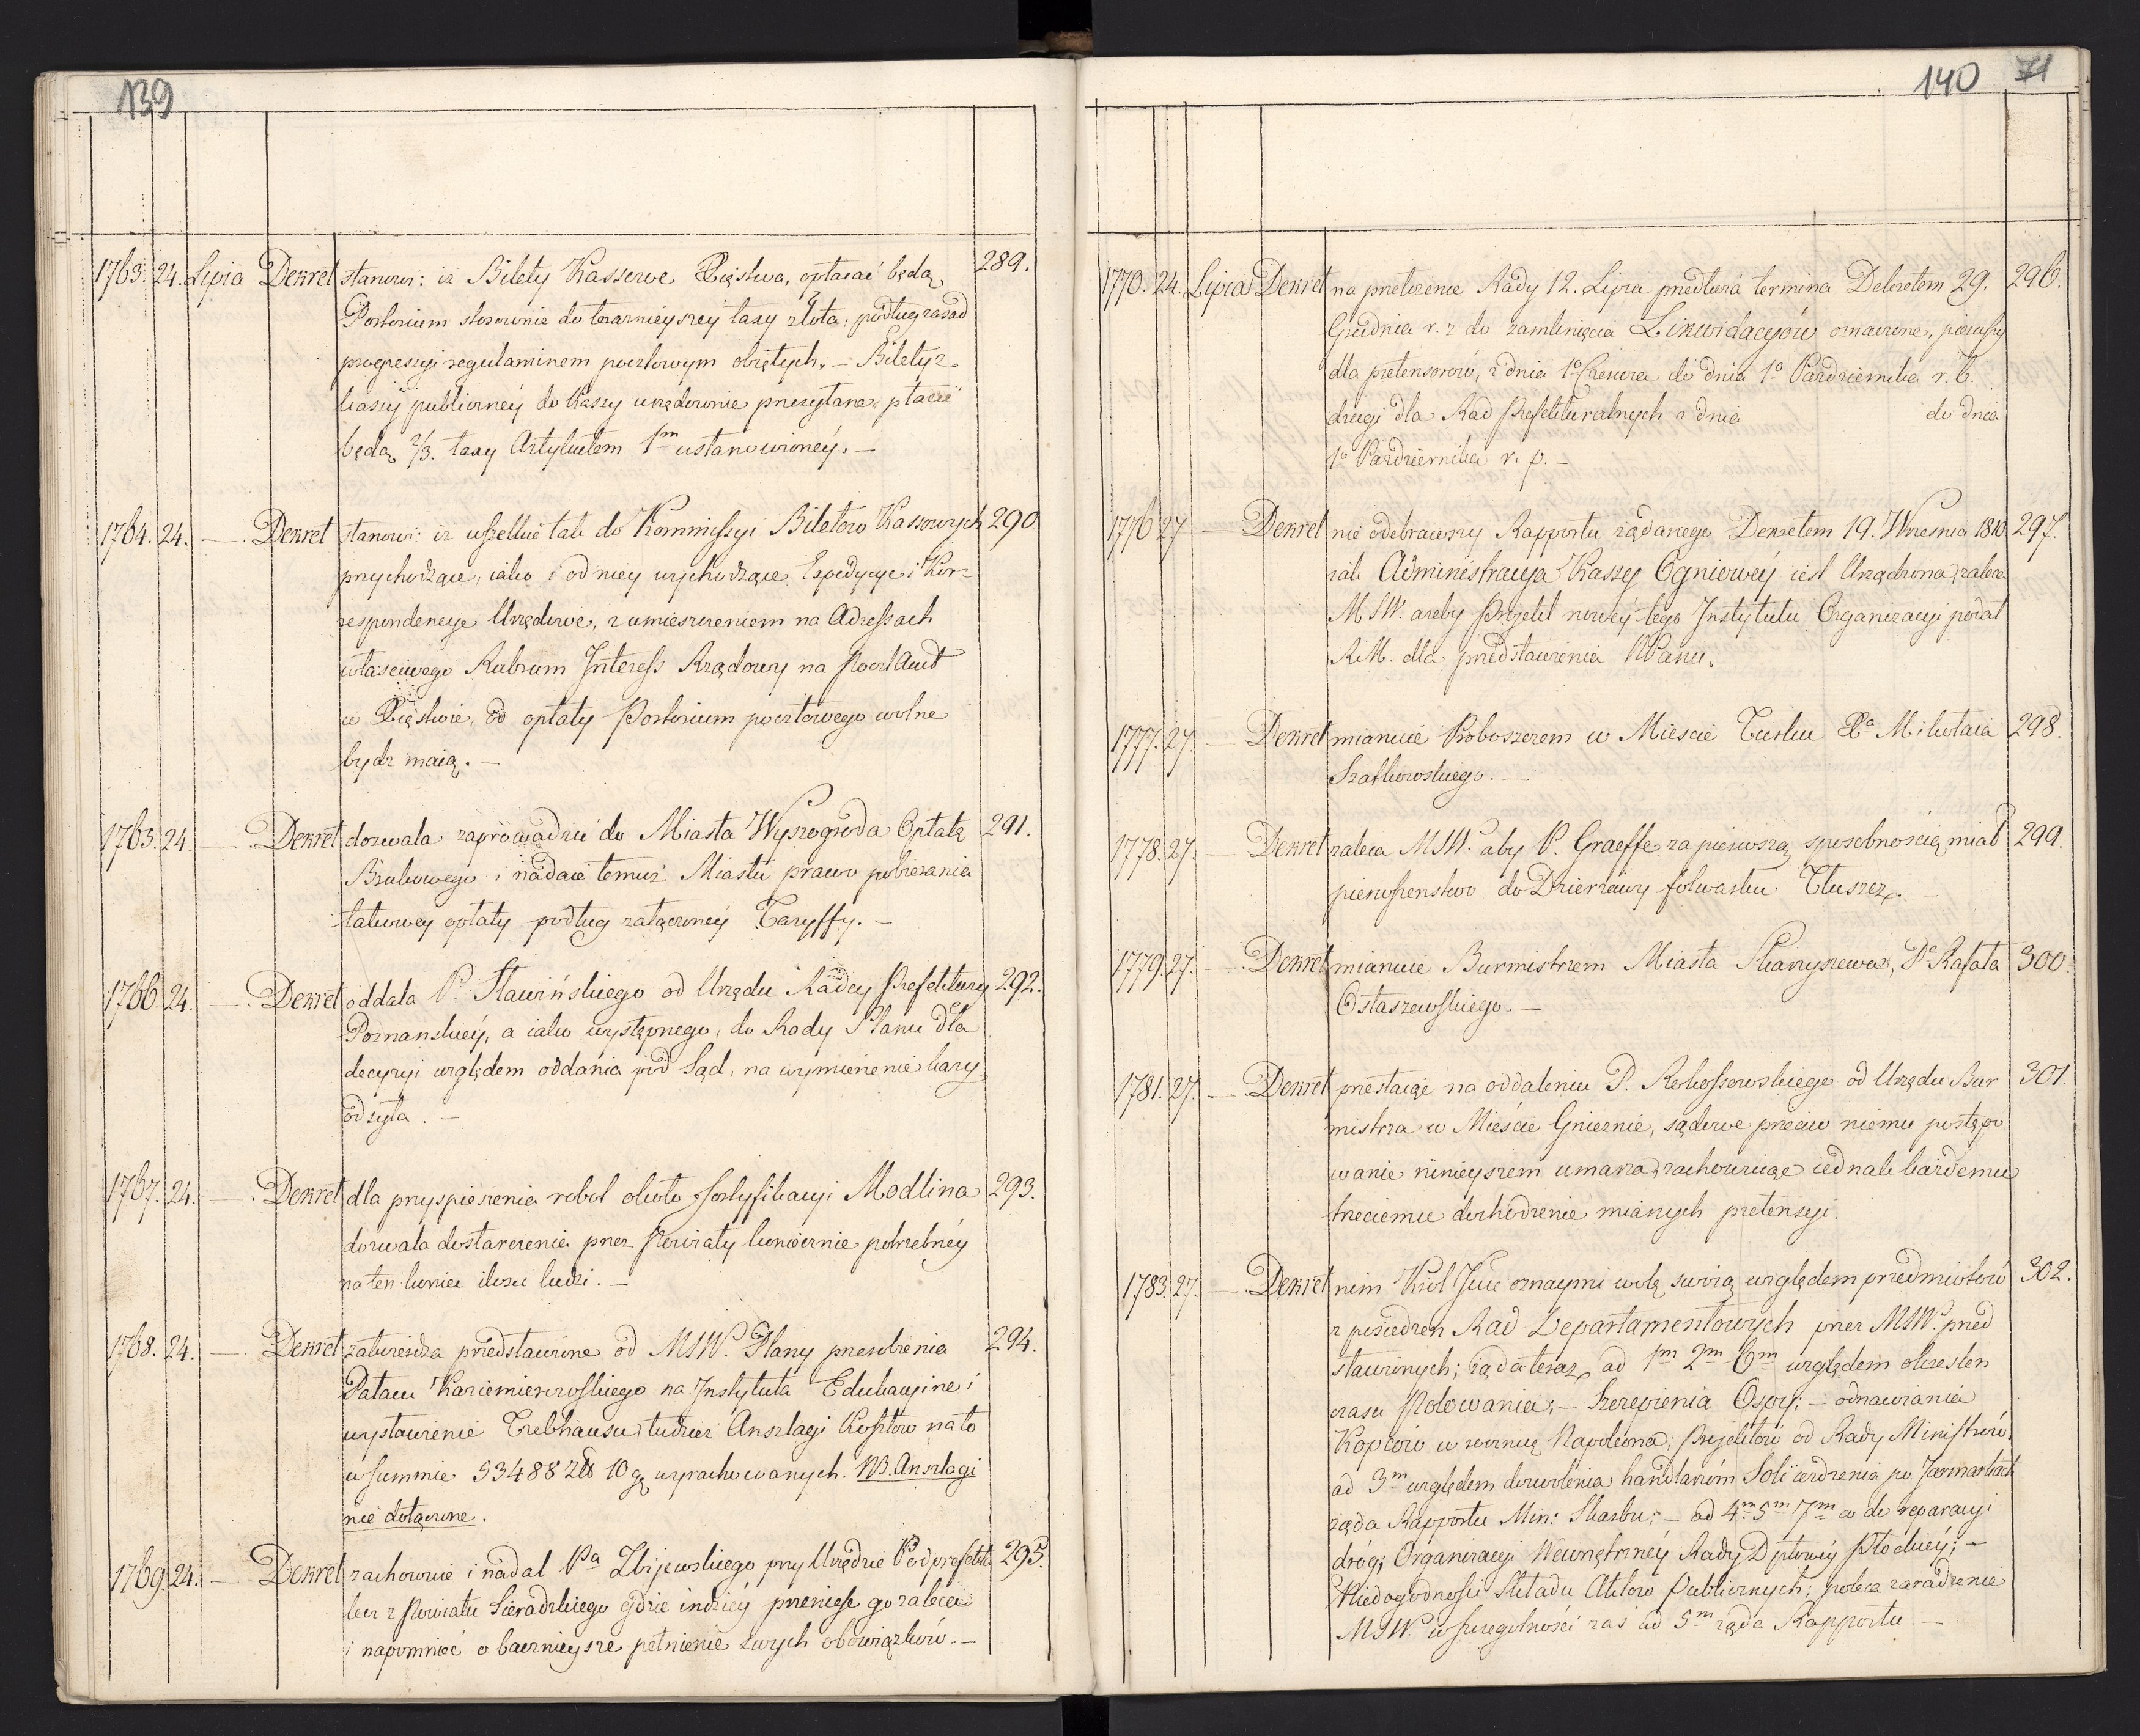 139
1763. 24. Lipca Dekret stanowi: iż Bilety Kassowe Xięstwa, opłacać będą 289.
Portorium stosownie do terazniejszej taxy złota, podług zasad
progressyi regulaminem pocztowym obiętych. – Bilety z
kassy publiczney do Kassy urzędownie przesyłane płacić
będą 2/3. taxy Artykułem 1m ustanowioney. –
1764. 24. – Dekret stanowi: iż wszelkie tak do Kommissyi Biletów Kassowych 290
przychodzące, iako i od niey wychodzące Expedycye i Kor=
respondencye Urzędowe, z umieszczeniem na Adressach
właściwego Rubrum Interess Rządowy na Poczt Amt
w Xięstwie, od opłaty Portorium pocztowego wolne
bydz maią. –
1765. 24. – Dekret dozwala zaprowadzić do Miasta Wyszogroda Opłatę 291.
Brukowego i nadaie temuż Miastu prawo pobierania
takowey opłaty podług załączoney Taryffy. –
1766 24. – Dekret oddala P. Sławińskiego od Urzędu Radcy Prefektury 292.
Poznanskiey, a iako występnego, do Rady Stanu dla
decyzyi względem oddania pod Sąd, na wymierzenie kary
odsyła. –
1767. 24. – Dekret dla przyspieszenia robot około fortyfikacyi Modlina 293.
dozwala dostarczenia przez Powiaty koniecznie potrzebney
na ten koniec ilości ludzi. –
1768. 24. – Dekret zatwierdza przedstawione od MSW. Plany przerobienia 294.
Pałacu Kazimierowskiego na Instytuta Edukacyine i
wystawienie Trebhausu, tudzież Anszlagi Kosztow na to
w summie 53488 zł 10 gr wyrachowanych. NB. Anszlagi
nie dołączone.
1769 24. – Dekret zachowuie i nadal Pa Zbijewskiego przy Urzędzie Podprefekta 295.
lecz z Powiatu Sieradzkiego gdzie indziey przenieść go zaleca
i napomnieć o baczniejsze pełnienie swych obowiązków. –
140 71
1770. 24. Lipca Dekret na przełożenie Rady 12. Lipca przedłuża termina Dekretem 29. 296.
Grudnia r. z do zamknięcia Likwidacyów oznaczone, pierwszy
dla pretensorów, z dnia 1o Czerwca do dnia 1o Pazdziernika r. b.
drugi dla Rad Prefekturalnych z dnia do dnia
1o Pazdziernika r. p. –
1776 27 – Dekret nie odebrawszy Rapportu żądanego Dekretem 19. Wrzesnia 1810 297.
iak Administracya Kassy Ogniowey iest Urządzona, zaleca
MSW. ażeby Projekt nowey tego Instytutu Organizacyi podał
R.M. dla przedstawienia NPanu.
1777. 27. – Dekret mianuie Proboszczem w Miescie Turku Xa Mikołaia 298.
Szatkowskiego. –
1778. 27. – Dekret zaleca MSW. aby P. Graeffe za pierwszą sposobnością miał 299.
pierwszenstwo do Dzierzawy folwarku Tłuszcz. –
1779. 27. – Dekret mianuie Burmistrzem Miasta Skaryszewa, Pa Rafała 300.
Ostaszewskiego. –
1781. 27. – Dekret przestaiąc na oddaleniu P. Rokossowskiego od Urzędu Bur 301.
mistrza w Mieście Gnieznie, sądowe przeciw niemu postępo
wanie ninieyszem umarza, zachowuiąc iednak każdemu
trzeciemu dochodzenie mianych pretensyi.
1783. 27. – Dekret nim Krol Jmc oznaymi wolą swoią względem przedmiotow 302.
z posiedzen Rad Departamentowych przez MSW. przed
stawionych; żąda teraz ad 1m 2m 6m względem okreslen
czasu Polowania; – Szczepienia Ospy; – odnawiania
Kopcow w rocznicę Napoleona; Projektow od Rady Ministrów.
ad 3m względem dozwolenia handlarzom Soli ieżdzenia po Jarmarkach
żąda Rapportu Min: Skarbu; – ad 4m 5m 7m co do reparacyi
dróg; Organizacyi Wewnętrzney Rady Dptowey Płockiey; –
Niedogodności Składu Aktow Publicznych; poleca zaradzenie
MSW. w szczegolności zas ad 5m żąda Rapportu –